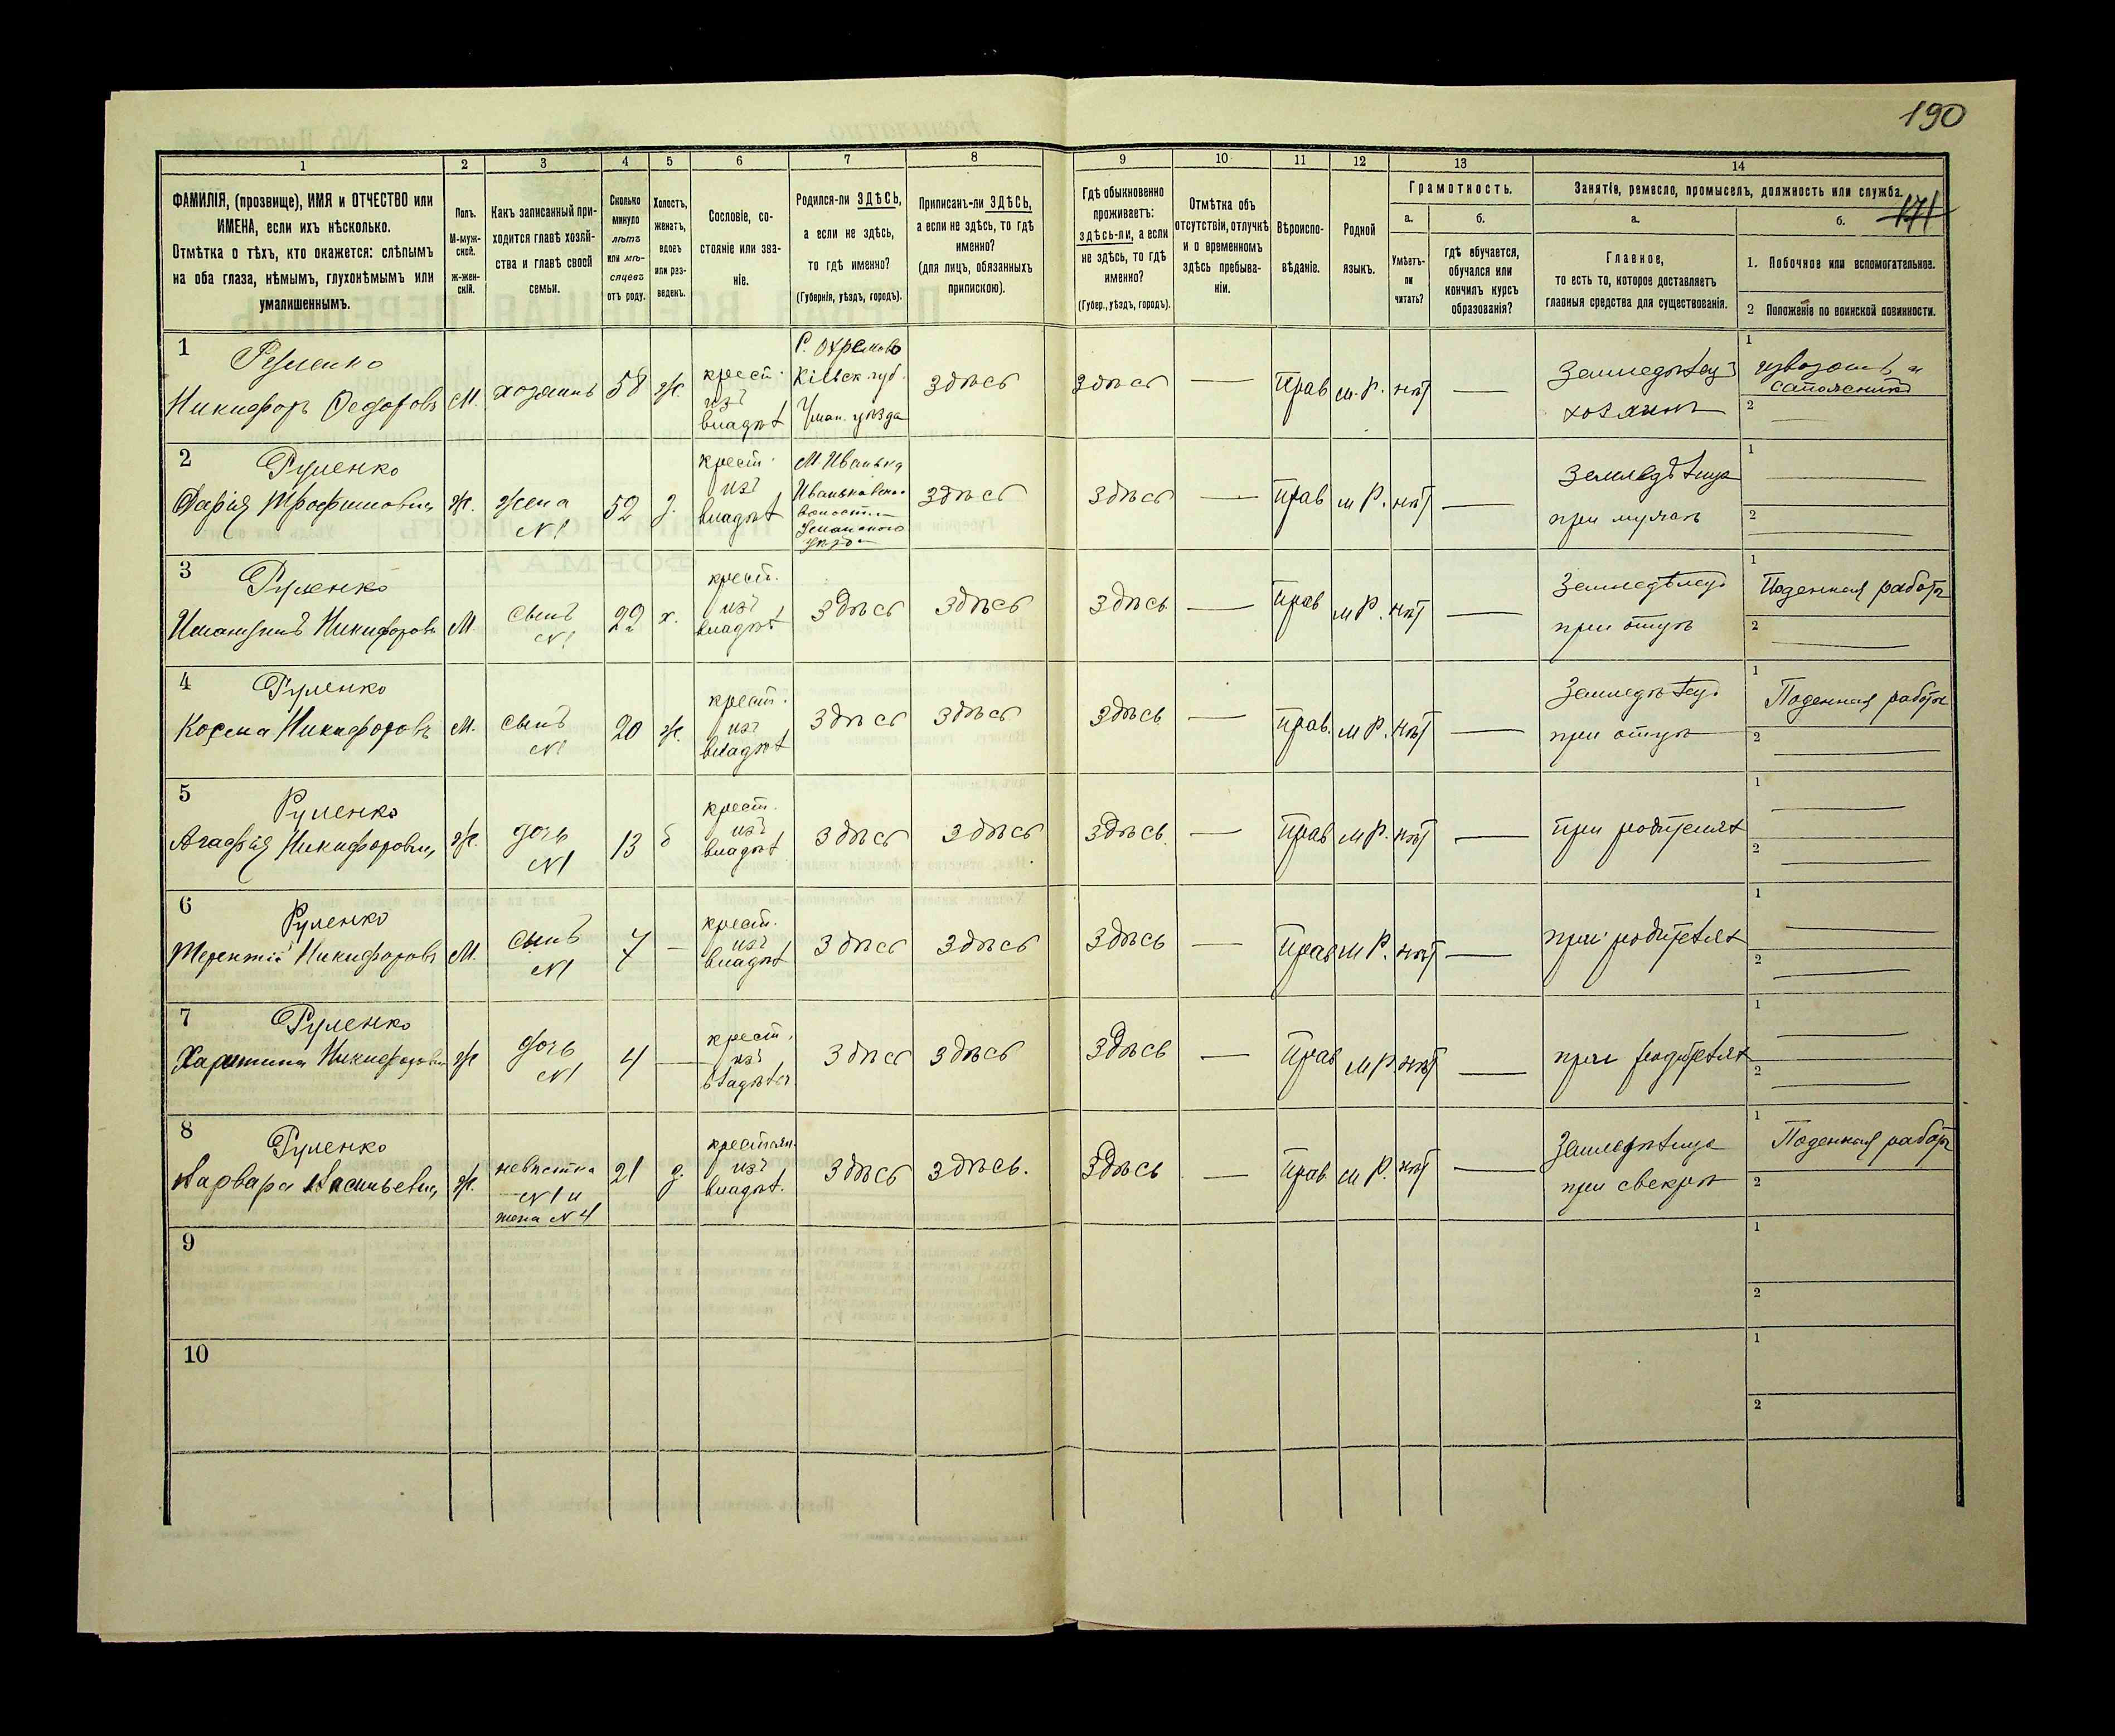 190
1 2 3 4 5 6 7 8 9 10 11 12 13 14
ФАМИЛІЯ, (прозвище), ИМЯ и ОТЧЕСТВО или
ИМЕНА, если ихъ нѣсколько.
Отмѣтка о тѣхъ, кто окажется: слѣпымъ
на оба глаза, нѣмымъ, глухонѣмымъ или
умалишеннымъ.
Полъ.
М-муж-
ской.
ж-жен-
скій.
Какъ записанный при-
ходится главѣ хозяй-
ства и главѣ своей
семьи.
Сколько
минуло
лѣтъ
или мѣ-
сяцевъ
отъ роду.
Холостъ,
женатъ,
вдовъ
или раз-
веденъ.
Сословіе, со-
стояніе или зва-
ніе.
Родился-ли ЗДѢСЬ,
а если не здѣсь,
то гдѣ именно?
(Губернія, уѣздъ, городъ).
Приписанъ-ли ЗДѢСЬ,
а если не здѣсь, то гдѣ
именно?
(для лицъ, обязанныхъ
припискою).
Гдѣ обыкновенно
проживаетъ:
здѣсь-ли, а если
не здѣсь, то гдѣ
именно?
(Губер., уѣздъ, городъ).
Отмѣтка объ
отсутствіи, отлучкѣ
и о временномъ
здѣсь пребыва-
ніи.
Вѣроиспо-
вѣданіе.
Родной
языкъ.
Грамотность.
а.
Умѣетъ-
ли
читать?
б.
гдѣ обучается,
обучался или
кончилъ курсъ
образованія?
Занятіе, ремесло, промыселъ, должность или служба.
171
а.
Главное,
то есть то, которое доставляетъ
главныя средства для существованія.
б.
1. Побочное или вспомогательное.
2 Положеніе по воинской повинности.
1
Руленко
Никифоръ Федоровъ
М.
хозяинъ
58
ж.
крест.
изъ
владѣл
С. Охрамово
Кіевск. губ.
Уман. уѣзда
здѣсь
здѣсь
—
Прав
м. Р.
нѣт
—
Земледѣлец
хозяинъ
1
2
2
Руленко
Дарія Трофимовна
ж.
жена
N1
52
з.
крест.
изъ
владѣл
М. Иванька
Иваньковской
волости
Уманского
уѣзда
здѣсь
здѣсь
—
Прав
м Р.
нѣт
—
Земледѣлица
при мужѣ
1
2
3
Руленко
Никифоровъ
М
сынъ
N1
22
х.
крест.
изъ
владѣл
здѣсь
здѣсь
здѣсь
—
Прав
м Р.
нѣт
—
Земледѣлец
при отцѣ
1 Поденная работа
2
4
Руленко
Косма Никифоровъ
М.
сынъ
N1
20
ж.
крест.
изъ
владѣл
здѣсь
здѣсь
здѣсь
—
Прав.
м Р.
нѣт
—
Земледѣлец
при отцѣ
1 Поденная работа
2
5
Руленко
Агафія Никифоровна
ж.
дочь
N1
13
б
крест.
изъ
владѣл
здѣсь
здѣсь
здѣсь.
—
Прав
м Р.
нѣт
—
при родителях
1
2
6
Руленко
Терентій Никифоровъ
М.
сынъ
N1
7
—
крест.
изъ
владѣл
здѣсь
здѣсь
здѣсь
—
Прав
м Р.
нѣт
—
при родителях
1
2
7
Руленко
Харитина Никифоровна
ж
дочь
N1
4
—
крест.
изъ
владѣл
здѣсь
здѣсь
здѣсь
—
Прав
м Р.
нѣт
—
при родителях
1
2
8
Руленко
Варвара Васильевна
ж.
невѣстка
N1 и
жена N4
21
з.
крестьян.
изъ
владѣл.
здѣсь
здѣсь.
здѣсь
—
Прав.
м Р.
нѣт
—
Земледѣлица
при свекрѣ
1 Поденная работа
2
9
1
2
10
1
2